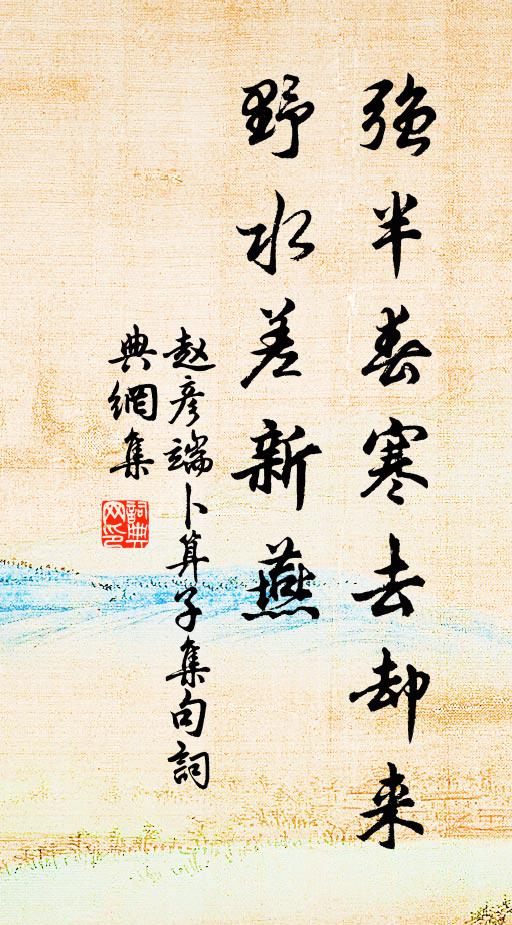 强半春寒去却来
野水差新燕
赵彦端卜算子集句词
典網集
詞典网印